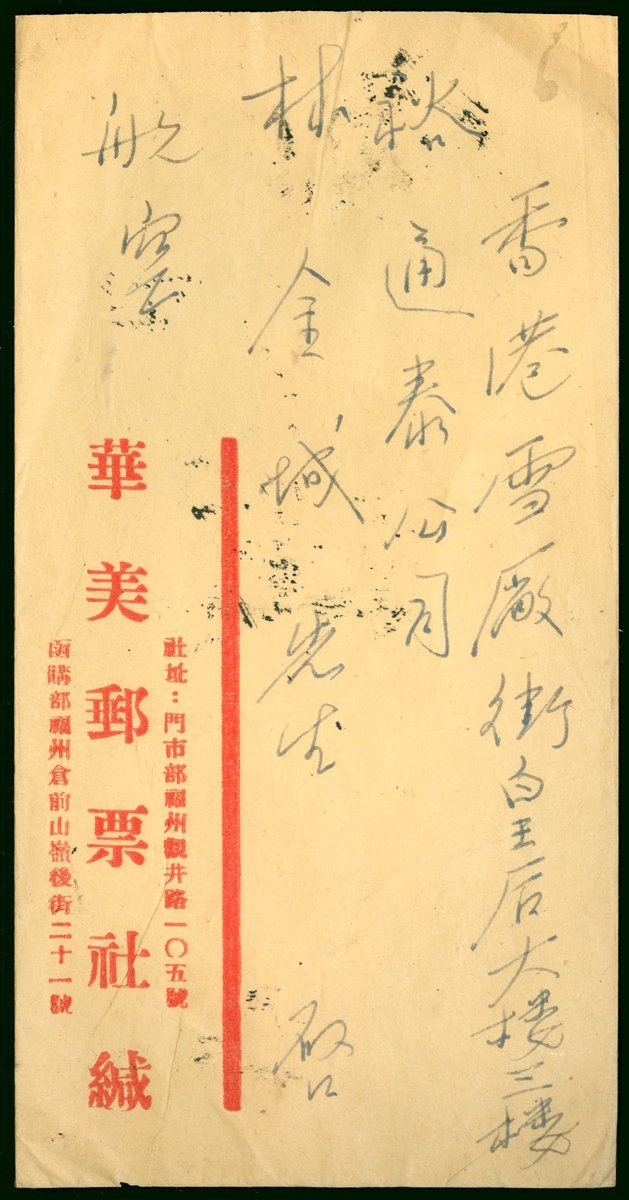 香港雪廠街皇后大楼三楼
通泰公司
林金城先生 启
航空
社址：門市部福州觀井路一〇五號
華美郵票社緘
函購部福州倉前山嶺後街二十一號